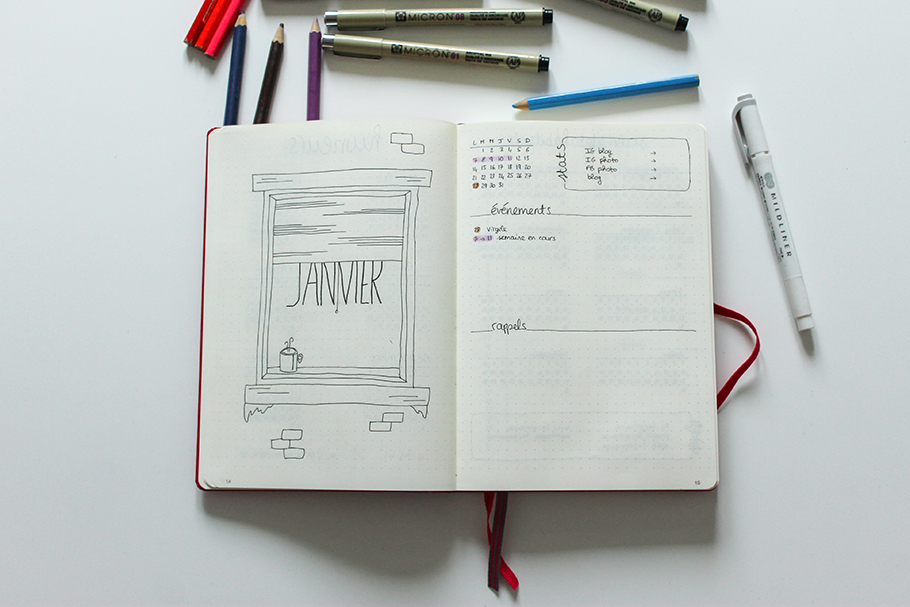 MICRON 08
MICRON 01
JANVIER
14
L M M J V S D
1 2 3 4 5 6
7 8 9 10 11 12 13
14 15 16 17 18 19 20
21 22 23 24 25 26 27
28 29 30 31
stats
IG blog
IG photo
FB photo
blog
événements
semaine en cours
rappels
15
MILDLINER